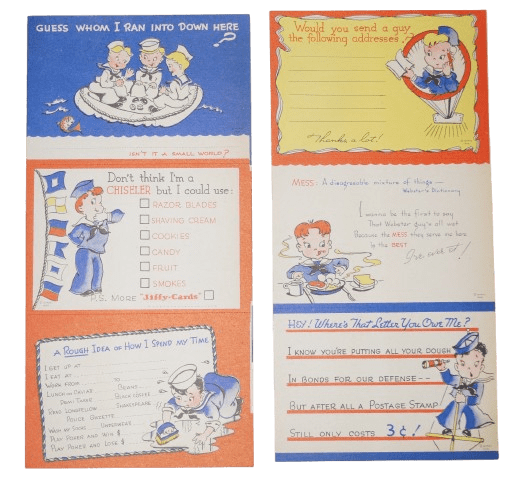 GUESS WHOM I RAN INTO DOWN HERE ?
ISN'T IT A SMALL WORLD?
Don't think I'm a
CHISELER but I could use:
RAZOR BLADES
SHAVING CREAM
COOKIES
CANDY
FRUIT
SMOKES
P.S. MORE "Jiffy-Cards"
A ROUGH IDEA OF HOW I SPEND MY TIME
I GET UP AT
I EAT AT
WORK FROM TO
LUNCH ON CAVIAR BEANS
READ LONGFELLOW SHAKESPEARE
POLICE GAZETTE
WASH MY SOCKS UNDERWEAR
PLAY POKER AND WIN $
PLAY POKER AND LOSE $
Would you send a guy
the following addresses?
Thanks a lot!
MESS: A disagreeable mixture of things —
Webster's Dictionary
I wanna be the first to say
That Webster guy's all wet
Because the MESS they serve me here
Is the BEST
HEY! WHERE'S THAT LETTER YOU OWE ME?
I KNOW YOU'RE PUTTING ALL YOUR DOUGH
IN BONDS FOR OUR DEFENSE--
BUT AFTER ALL A POSTAGE STAMP
STILL ONLY COSTS 3¢!